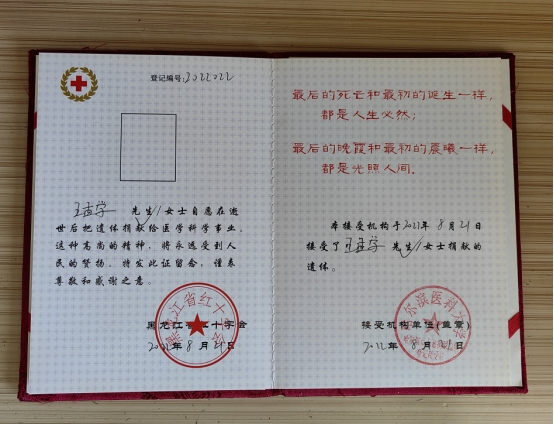 登记编号:2022022
王孟学 先生//女士自愿在逝
世后把遗体捐献给医学科学事业。
这种高尚的精神，将永远受到人
民的赞扬。特发此证留念，谨表
尊敬和感谢之意。
黑龙江省红十字会
年8月21日
最后的死亡和最初的诞生一样，
都是人生必然；
最后的晚霞和最初的晨曦一样，
都是光照人间。
本接受机构于2021年8月21日
接受了王孟学 先生//女士捐献的
遗体。
接受机构单位(盖章)
年8月21日